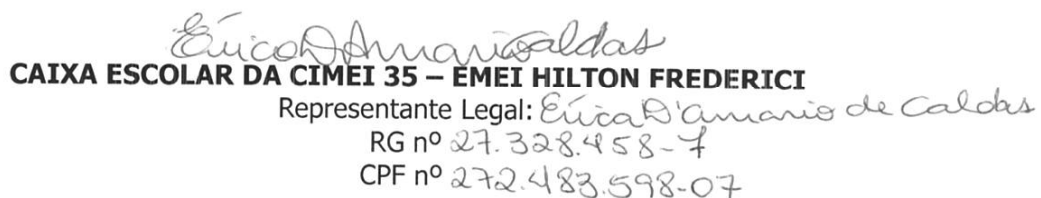 Érica D'Amario Caldas
CAIXA ESCOLAR DA CIMEI 35 – EMEI HILTON FREDERICI
Representante Legal: Érica D'amario de Caldas
RG nº 27.328.458-7
CPF nº 272.483.598-07